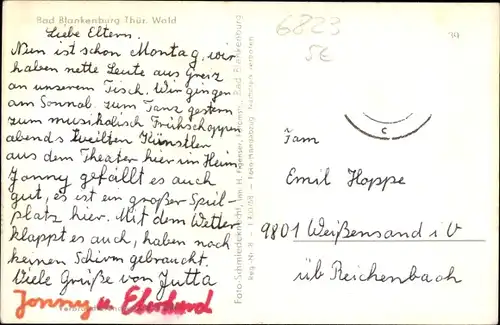 Bad Blankenburg Thür. Wald
Liebe Eltern.
Nun ist schon Montag, wir
haben nette Leute aus Greiz
an unserem Tisch. Wir gingen
am Sonnab. zum Tanz gestern
zum musikalisch Frühschoppen
abends weilten Künstler
aus dem Theater hier im Heim
Jonny gefällt es auch
gut, es ist ein großer Spiel-
platz hier. Mit dem Wetter
klappt es auch, haben noch
keinen Schirm gebraucht.
Viele Grüße von Jutta
Jonny u. Eberhard
6823
5E
39
C
Fam
Emil Hoppe
9801 Weißensand i V
üb Reichenbach